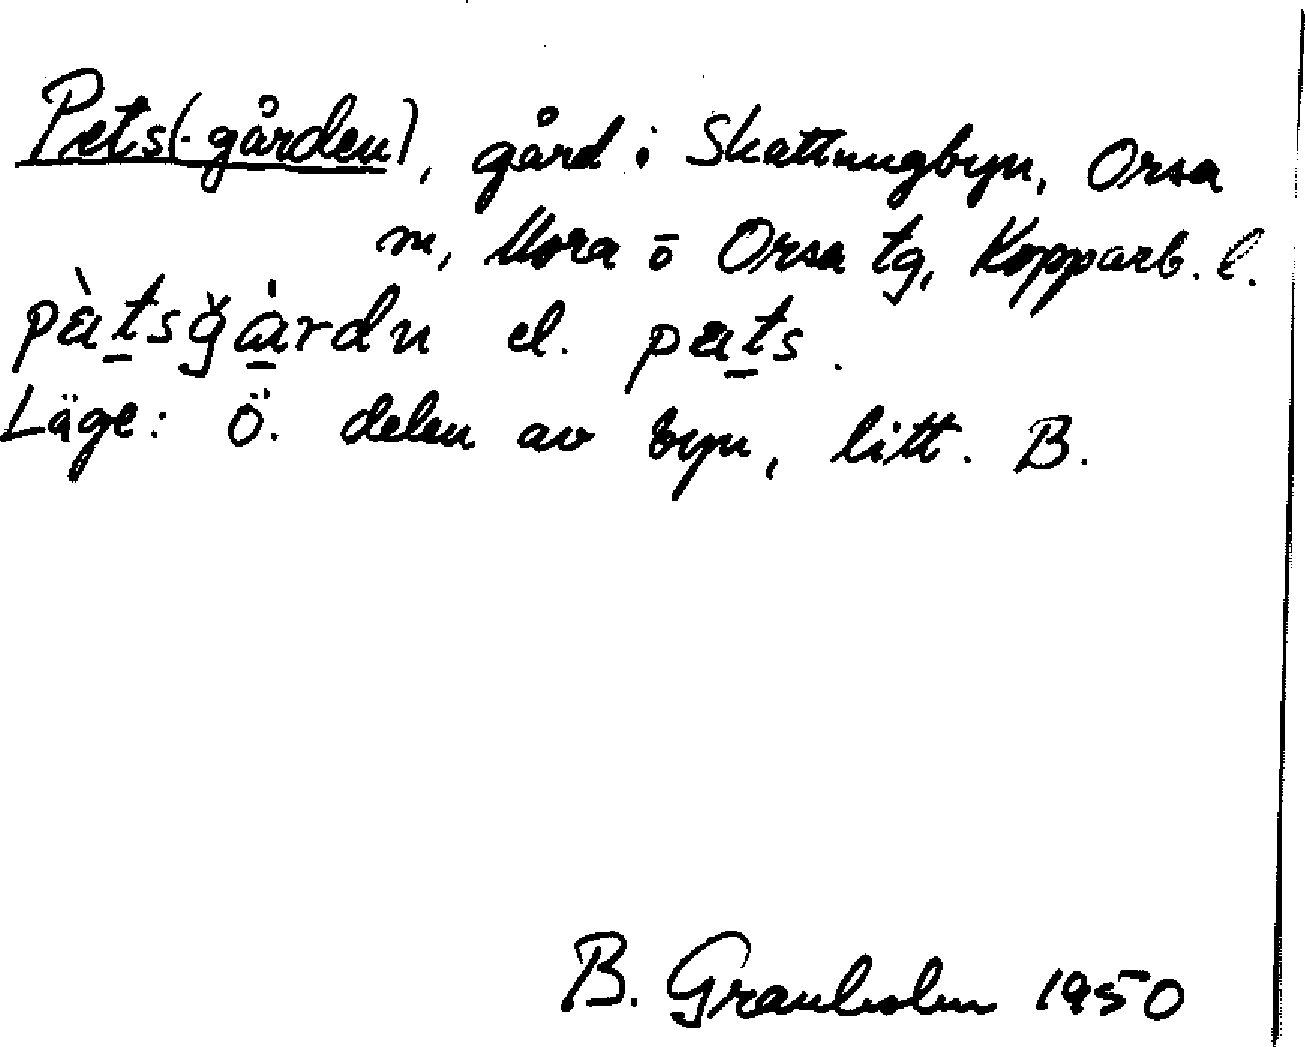 Pets(-gården), gård i Skattungbyn, Orsa
sn, Mora o Orsa tg, Kopparb. l.
pä̀tsg̀àrdn el. päts.
Läge: Ö. delen av byn, litt. B.
B. Granholm 1950